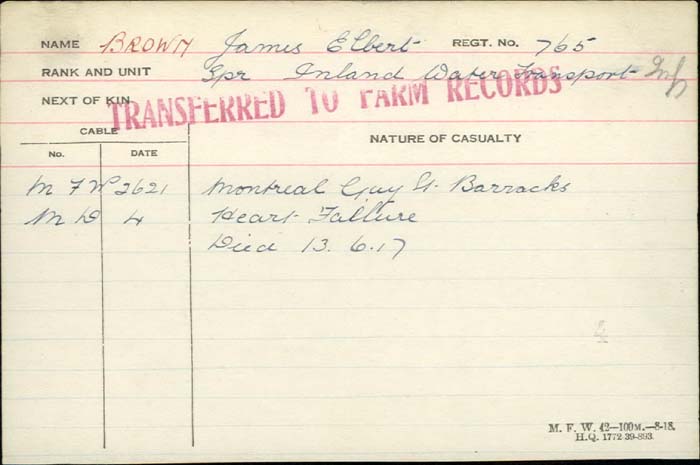 NAME BROWN James Elbert REGT. NO. 765
RANK AND UNIT Spr Inland Water Transport
NEXT OF KIN
TRANSFERRED TO FARM RECORDS
CABLE NATURE OF CASUALTY
No. DATE
M F W 2621 Montreal Guy St. Barracks
M D 4 Heart Failure
Died 13.6.17
M. F. W. 42—100M.—8-18.
H.Q. 1772-39-893.